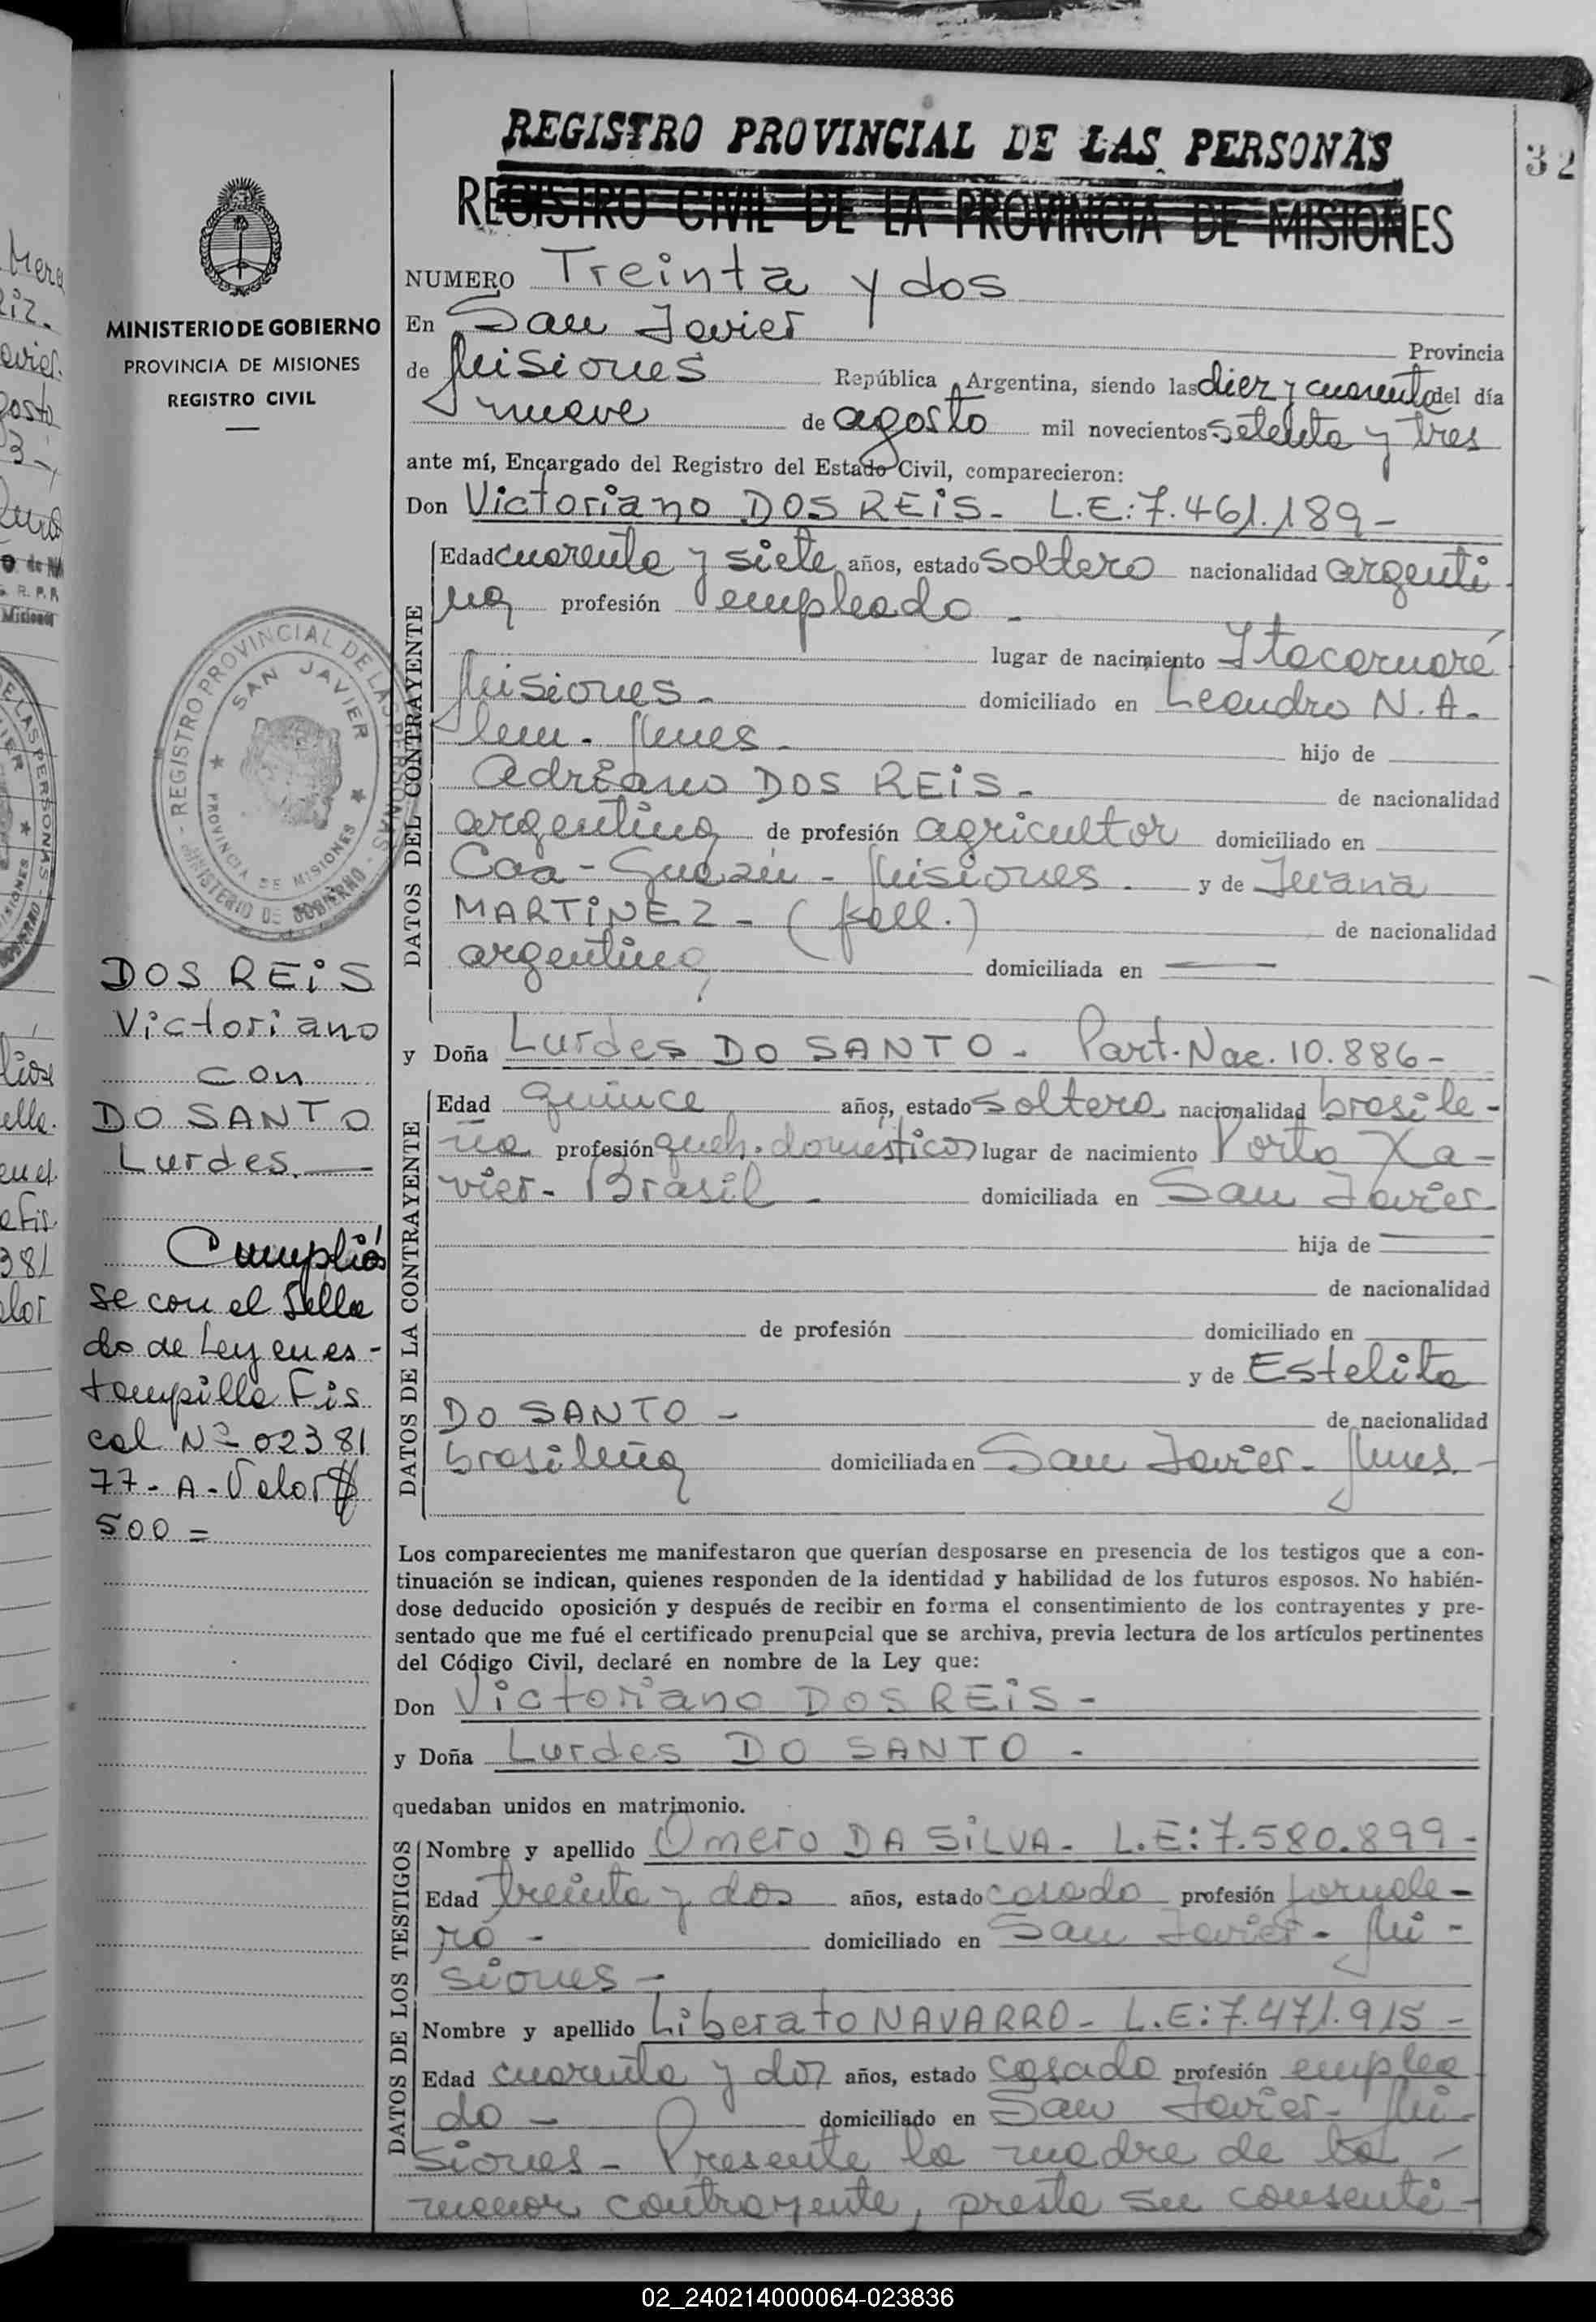 REGISTRO PROVINCIAL DE LAS PERSONAS
REGISTRO CIVIL DE LA PROVINCIA DE MISIONES
32
MINISTERIO DE GOBIERNO
PROVINCIA DE MISIONES
REGISTRO CIVIL
NUMERO Treinta y dos
En San Javier Provincia
de Misiones República Argentina, siendo las diez y cuarenta del día
nueve de agosto mil novecientos setenta y tres
ante mí, Encargado del Registro del Estado Civil, comparecieron:
Don Victoriano DOS REIS- L.E:7.461.189-
DATOS DEL CONTRAYENTE
Edad cuarenta y siete años, estado soltero nacionalidad argenti
na profesión empleado -
lugar de nacimiento Itacaruaré
Misiones- domiciliado en Leandro N. A-
lem- Mnes- hijo de
Adriano DOS REIS- de nacionalidad
argentina de profesión agricultor domiciliado en
Caa-Guazú- Misiones- y de Juana
MARTINEZ- (fall.) de nacionalidad
argentina domiciliada en —
y Doña Lurdes DO SANTO- Part. Nac. 10.886-
DATOS DE LA CONTRAYENTE
Edad quince años, estado soltera nacionalidad brasile-
ña profesión queh. domésticos lugar de nacimiento Porto Xa-
vier- Brasil- domiciliada en San Javier
hija de —
de nacionalidad
de profesión domiciliado en
y de Estelita
DO SANTO- de nacionalidad
brasileña domiciliada en San Javier- Mnes-
Los comparecientes me manifestaron que querían desposarse en presencia de los testigos que a con-
tinuación se indican, quienes responden de la identidad y habilidad de los futuros esposos. No habién-
dose deducido oposición y después de recibir en forma el consentimiento de los contrayentes y pre-
sentado que me fué el certificado prenupcial que se archiva, previa lectura de los artículos pertinentes
del Código Civil, declaré en nombre de la Ley que:
Don Victoriano DOS REIS-
y Doña Lurdes DO SANTO-
quedaban unidos en matrimonio.
DATOS DE LOS TESTIGOS
Nombre y apellido Omero DA SILVA- L.E:7.580.899-
Edad treinta y dos años, estado casado profesión jornale-
ro- domiciliado en San Javier- Mi-
siones-
Nombre y apellido Liberato NAVARRO- L.E:7.471.915-
Edad cuarenta y dos años, estado casado profesión emplea
do- domiciliado en San Javier- Mi-
siones- Presente la madre de la
menor contrayente, presta su consenti-
REGISTRO PROVINCIAL DE LAS PERSONAS
MINISTERIO DE GOBIERNO
SAN JAVIER
PROVINCIA DE MISIONES
DOS REIS
Victoriano
con
DO SANTO
Lurdes.—
Cumplió
se con el Sella
do de Ley en es-
tampilla Fis
cal Nº 02381
77-A-Valor $
500=
02_240214000064-023836